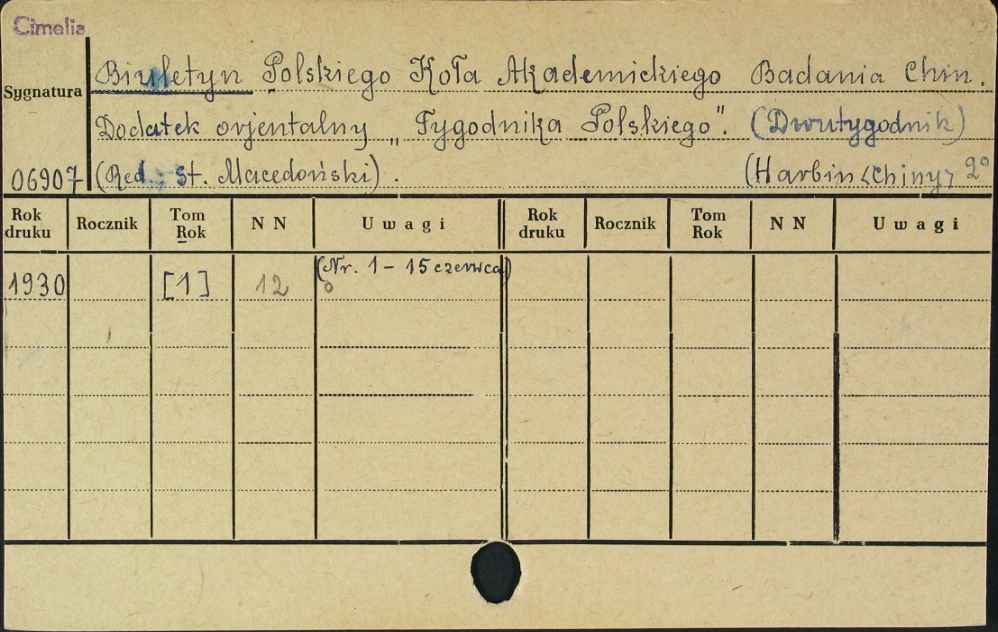 Cimelia
Biuletyn Polskiego Koła Akademickiego Badania Chin.
Sygnatura
Dodatek orjentalny „Tygodnika Polskiego". (Dwutygodnik)
06907 (Red.: St. Macedoński). (Harbin <Chiny> 2°
Rok druku Rocznik Tom Rok NN Uwagi Rok druku Rocznik Tom Rok NN Uwagi
(Nr. 1 - 15 czerwca)
1930 [1] 12